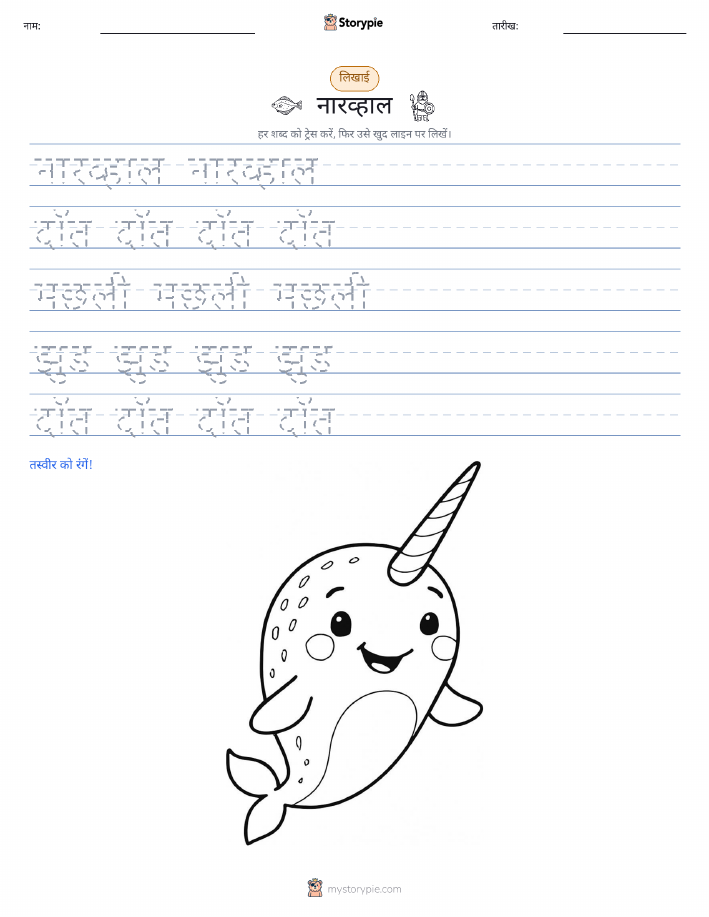 नाम: Storypie तारीख:
लिखाई
नारव्हाल
हर शब्द को ट्रेस करें, फिर उसे खुद लाइन पर लिखें।
नारव्हाल नारव्हाल
दाँत दाँत दाँत दाँत
मछली मछली मछली
झुंड झुंड झुंड झुंड
दाँत दाँत दाँत दाँत
तस्वीर को रंगें!
mystorypie.com